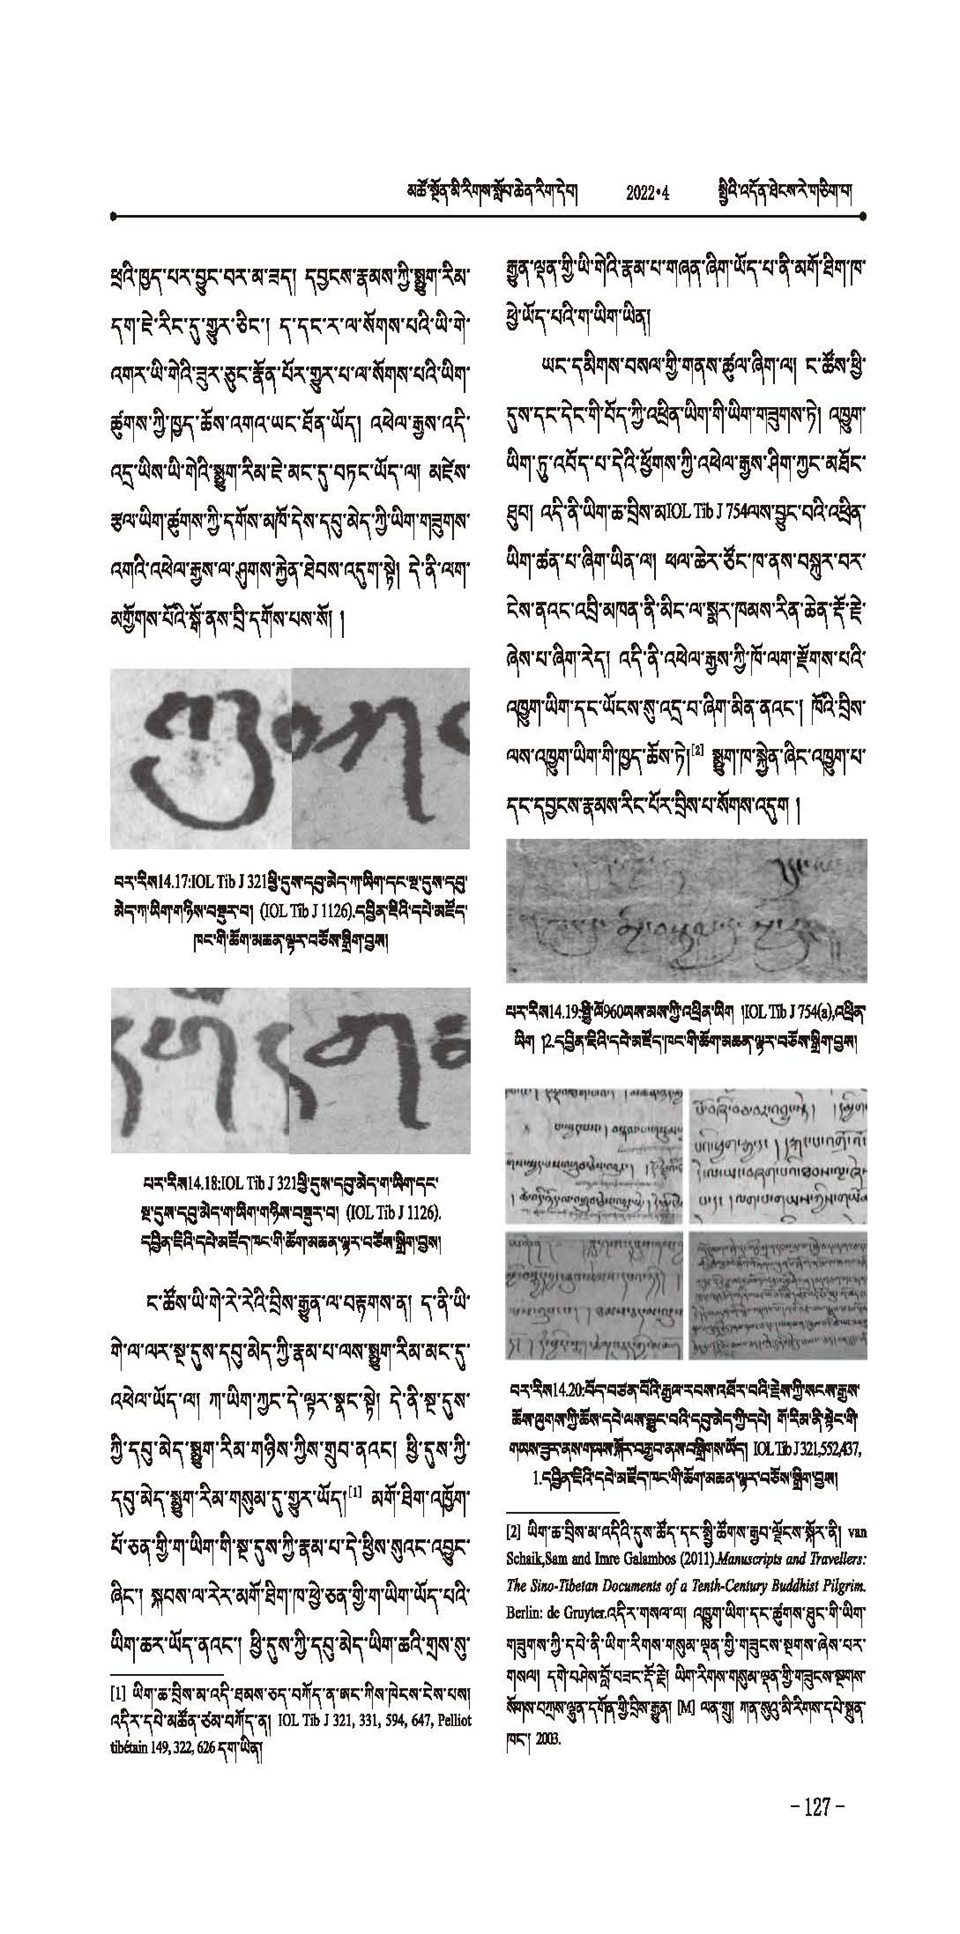 མཚོ་སྔོན་མི་རིགས་སློབ་ཆེན་རིག་དེབ། 2022•4 སྤྱིའི་འདོན་ཐེངས་རེ་གཅིག་པ།
ཕྲའི་ཁྱད་པར་བྱུང་བར་མ་ཟད། དབྱངས་རྣམས་ཀྱི་སྨྱུག་རིམ་
དག་ཇེ་རིང་དུ་གྱུར་ཅིང་། ད་དང་ར་ལ་སོགས་པའི་ཡི་གེ་
འགར་ཡི་གེའི་ཟུར་ཅུང་རྣོན་པོར་གྱུར་པ་ལ་སོགས་པའི་ཡིག་
ཚུགས་ཀྱི་ཁྱད་ཆོས་འགའ་ཡང་ཐོན་ཡོད། འཕེལ་རྒྱས་འདི་
འདྲ་ཡིས་ཡི་གེའི་སྨྱུག་རིམ་ཇེ་མང་དུ་བཏང་ཡོད་ལ། མཛེས་
རྩལ་ཡིག་ཚུགས་ཀྱི་དགོས་མཁོ་དེས་དབུ་མེད་ཀྱི་ཡིག་གཟུགས་
འགའི་འཕེལ་རྒྱས་ལ་ཤུགས་རྐྱེན་ཐེབས་འདུག་སྟེ། དེ་ནི་ལག་
མགྱོགས་པོའི་སྒོ་ནས་བྲི་དགོས་པས་སོ། །
པར་རིས14.17:IOL Tib J 321ཕྱི་དུས་དབུ་མེད་ཀ་ཡིག་དང་སྔ་དུས་དབུ་
མེད་ཀ་ཡིག་གཉིས་བསྡུར་བ། (IOL Tib J 1126).དབྱིན་ཇིའི་དཔེ་མཛོད་
ཁང་གི་ཆོག་མཆན་ལྟར་བཅོས་སྒྲིག་བྱས།
པར་རིས14.18:IOL Tib J 321ཕྱི་དུས་དབུ་མེད་ག་ཡིག་དང་
སྔ་དུས་དབུ་མེད་ག་ཡིག་གཉིས་བསྡུར་བ། (IOL Tib J 1126).
དབྱིན་ཇིའི་དཔེ་མཛོད་ཁང་གི་ཆོག་མཆན་ལྟར་བཅོས་སྒྲིག་བྱས།
ང་ཚོས་ཡི་གེ་རེ་རེའི་བྲིས་རྒྱུན་ལ་བརྟགས་ན། ད་ནི་ཡི་
གེ་ལ་ལར་སྔ་དུས་དབུ་མེད་ཀྱི་རྣམ་པ་ལས་སྨྱུག་རིམ་མང་དུ་
འཕེལ་ཡོད་ལ། ཀ་ཡིག་ཀྱང་དེ་ལྟར་སྣང་སྟེ། དེ་ནི་སྔ་དུས་
ཀྱི་དབུ་མེད་སྨྱུག་རིམ་གཉིས་ཀྱིས་གྲུབ་ནའང་། ཕྱི་དུས་ཀྱི་
དབུ་མེད་སྨྱུག་རིམ་གསུམ་དུ་གྱུར་ཡོད།[1] མགོ་ཐིག་འཁྱོག་
པོ་ཅན་གྱི་ག་ཡིག་གི་སྔ་དུས་ཀྱི་རྣམ་པ་དེ་ཕྱིས་སུའང་འབྱུང་
ཞིང་། སྐབས་ལ་རེར་མགོ་ཐིག་ཁ་ཕྱེ་ཅན་གྱི་ག་ཡིག་ཡོད་པའི་
ཡིག་ཆར་ཡོད་ནའང་། ཕྱི་དུས་ཀྱི་དབུ་མེད་ཡིག་ཆའི་གྲས་སུ་
[1] ཡིག་ཆ་བྲིས་མ་འདི་ཐམས་ཅད་བཀོད་ན་ཨང་ཀིས་ཁེངས་ངེས་པས།
འདིར་དཔེ་མཚོན་ཙམ་བཀོད་ན། IOL Tib J 321, 331, 594, 647, Pelliot
tibétain 149, 322, 626 དག་ཡིན།
རྒྱུན་ལྡན་གྱི་ཡི་གེའི་རྣམ་པ་གཞན་ཞིག་ཡོད་པ་ནི་མགོ་ཐིག་ཁ་
ཕྱེ་ཡོད་པའི་ག་ཡིག་ཡིན།
ཡང་དམིགས་བསལ་གྱི་གནས་ཚུལ་ཞིག་ལ། ང་ཚོས་ཕྱི་
དུས་དང་དེང་གི་བོད་ཀྱི་འཕྲིན་ཡིག་གི་ཡིག་གཟུགས་ཏེ། འཁྱུག་
ཡིག་ཏུ་འབོད་པ་དེའི་ཕྱོགས་ཀྱི་འཕེལ་རྒྱས་ཤིག་ཀྱང་མཐོང་
ཐུབ། འདི་ནི་ཡིག་ཆ་བྲིས་མIOL Tib J 754ལས་བྱུང་བའི་འཕྲིན་
ཡིག་ཚན་པ་ཞིག་ཡིན་ལ། ཕལ་ཆེར་ཙོང་ཁ་ནས་བསྐུར་བར་
ངེས་ནའང་འབྲི་མཁན་ནི་མིང་ལ་སྨར་ཁམས་རིན་ཆེན་རྡོ་རྗེ་
ཞེས་པ་ཞིག་རེད། འདི་ནི་འཕེལ་རྒྱས་ཀྱི་ཁོ་ལག་རྫོགས་པའི་
འཁྱུག་ཡིག་དང་ཡོངས་སུ་འདྲ་བ་ཞིག་མིན་ནའང་། ཁོའི་བྲིས་
ལས་འཁྱུག་ཡིག་གི་ཁྱད་ཆོས་ཏེ།[2] སྨྱུག་ཁ་སྐྱེན་ཞིང་འཁྱུག་པ་
དང་དབྱངས་རྣམས་རིང་པོར་བྲིས་པ་སོགས་འདུག །
པར་རིས14.19:སྤྱི་ལོ960ལས་མས་ཀྱི་འཕྲིན་ཡིག །IOL Tib J 754(a),འཕྲིན་
ཡིག །2.དབྱིན་ཇིའི་དཔེ་མཛོད་ཁང་གི་ཆོག་མཆན་ལྟར་བཅོས་སྒྲིག་བྱས།
པར་རིས14.20:བོད་བཙན་པོའི་རྒྱལ་རབས་འཐོར་བའི་རྗེས་ཀྱི་སངས་རྒྱས་
ཆོས་ལུགས་ཀྱི་ཆོས་དཔེ་ལས་བྱུང་བའི་དབུ་མེད་ཀྱི་དཔེ། གོ་རིམ་ནི་སྟེང་གི་
གཡས་ཟུར་ནས་གཡས་སྐོར་བརྒྱབ་ནས་བསྒྲིགས་ཡོད། IOL Tib J 321,552,437,
1.དབྱིན་ཇིའི་དཔེ་མཛོད་ཁང་གི་ཆོག་མཆན་ལྟར་བཅོས་སྒྲིག་བྱས།
[2] ཡིག་ཆ་བྲིས་མ་འདིའི་དུས་ཚོད་དང་སྤྱི་ཚོགས་རྒྱབ་ལྗོངས་སྐོར་ནི། van
Schaik,Sam and Imre Galambos (2011).Manuscripts and Travellers:
The Sino-Tibetan Documents of a Tenth-Century Buddhist Pilgrim.
Berlin: de Gruyter.འདིར་གསལ་ལ། འཁྱུག་ཡིག་དང་ཚུགས་ཐུང་གི་ཡིག་
གཟུགས་ཀྱི་དཔེ་ནི་ཡིག་རིགས་གསུམ་ལྡན་གྱི་གཟུངས་སྔགས་ཞེས་པར་
གསལ། དགེ་བཤེས་བློ་བཟང་རྡོ་རྗེ། ཡིག་རིགས་གསུམ་ལྡན་གྱི་གཟུངས་སྔགས་
སོགས་བཀྲས་ལྷུན་དགོན་གྱི་བྲིས་རྒྱུན། [M] ལན་གྲུ། ཀན་སུའུ་མི་རིགས་དཔེ་སྐྲུན་
ཁང་། 2003.
– 127 –